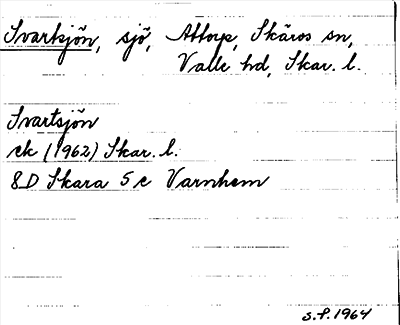 Svartsjön, sjö, Attorp, Skärvs sn,
Valle hd, Skar. l.
Svartsjön
ek (1962) Skar. l.
8D Skara 5 c Varnhem
S.P. 1964